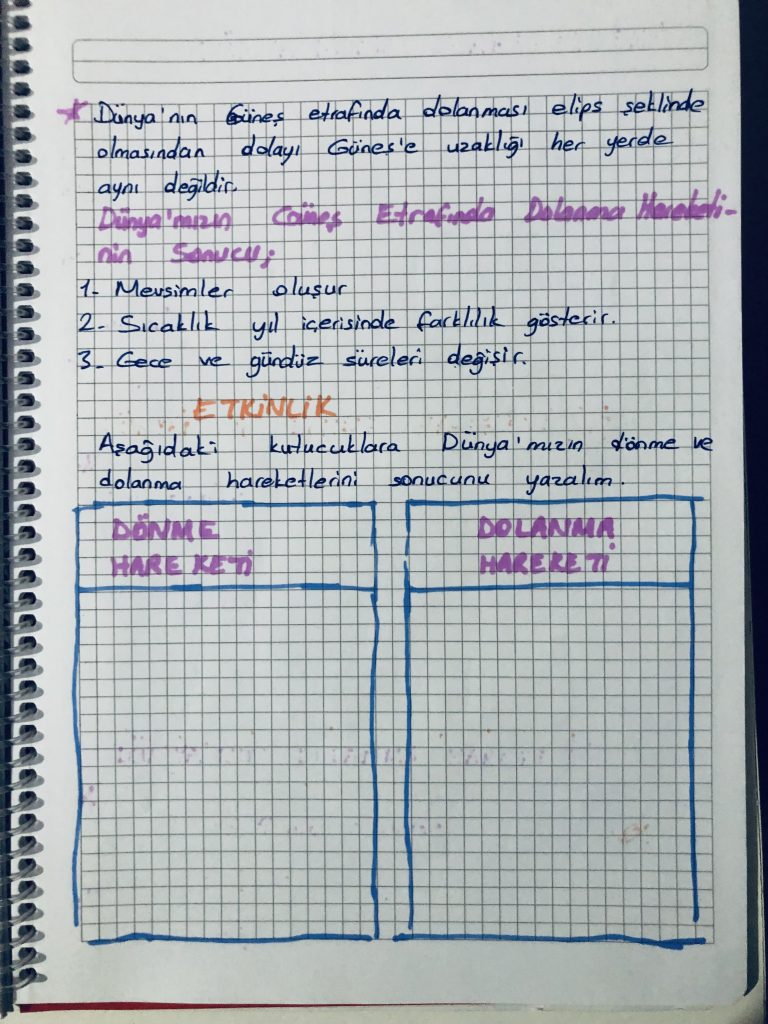 * Dünya'nın Güneş etrafında dolanması elips şeklinde
olmasından dolayı Güneş'e uzaklığı her yerde
aynı değildir.
Dünya'mızın Güneş Etrafında Dolanma Hareketi-
nin Sonucu;
1- Mevsimler oluşur
2- Sıcaklık yıl içerisinde farklılık gösterir.
3- Gece ve gündüz süreleri değişir.
ETKİNLİK
Aşağıdaki kutucuklara Dünya'mızın dönme ve
dolanma hareketlerini sonucunu yazalım.
DÖNME
HAREKETİ
DOLANMA
HAREKETİ